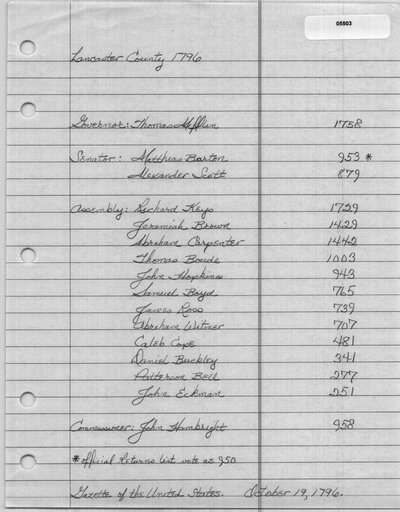 05503
Lancaster County 1796
Governor: Thomas Mifflin 1758
Senator: Matthias Barton 953 *
Alexander Scott 879
Assembly: Richard Keys 1729
Jeremiah Brown 1429
Abraham Carpenter 1442
Thomas Boude 1003
John Hopkins 943
Samuel Boyd 765
James Ross 739
Abraham Witmer 707
Caleb Cope 481
Daniel Buckley 341
Patterson Bell 277
John Eckman 251
Commissioner: John Hambright 958
* official returns list vote as 950
Gazette of the United States. October 19, 1796.